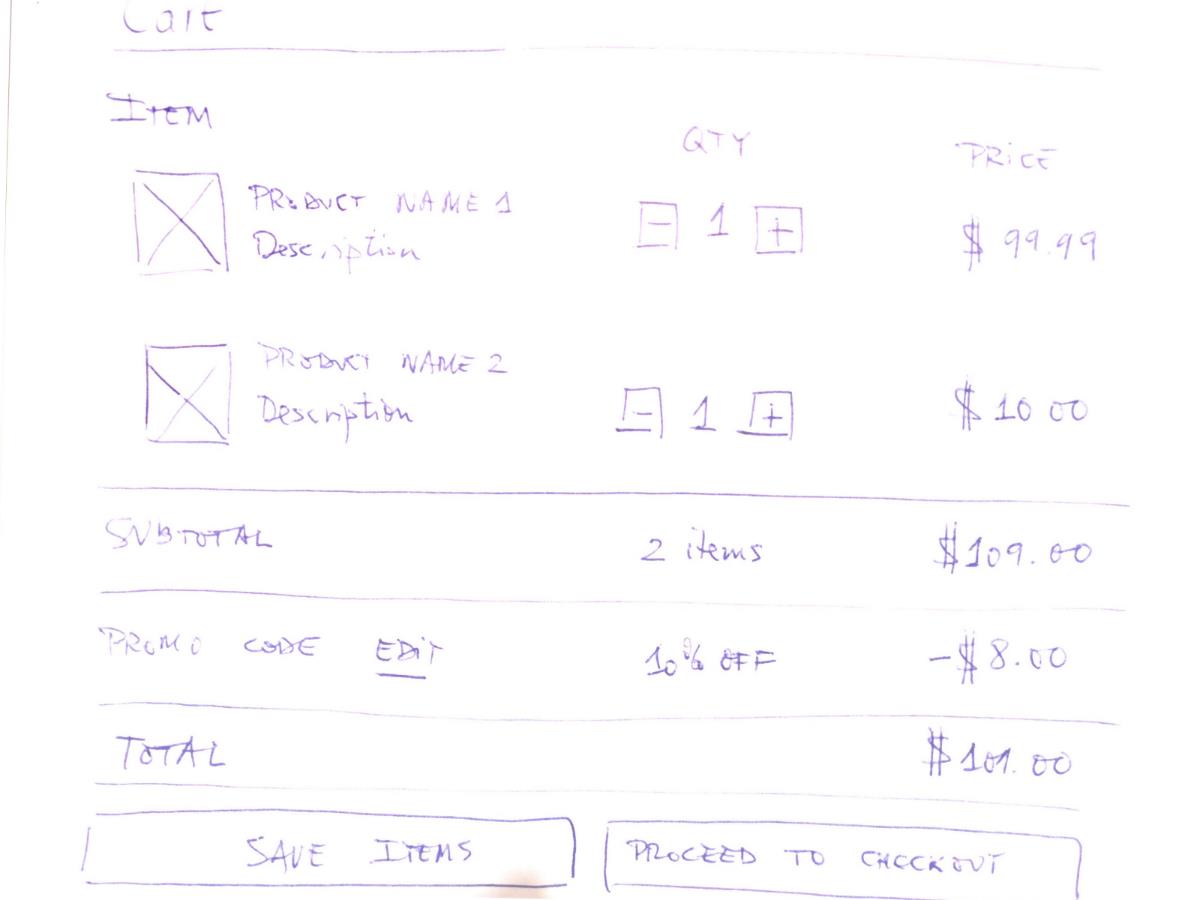 Cart
ITEM QTY PRICE
PRODUCT NAME 1
Description
- 1 + $ 99.99
PRODUCT NAME 2
Description
- 1 + $ 10 00
SUBTOTAL 2 items $109.00
PROMO CODE EDIT 10% OFF -$8.00
TOTAL $101.00
SAVE ITEMS PROCEED TO CHECKOUT